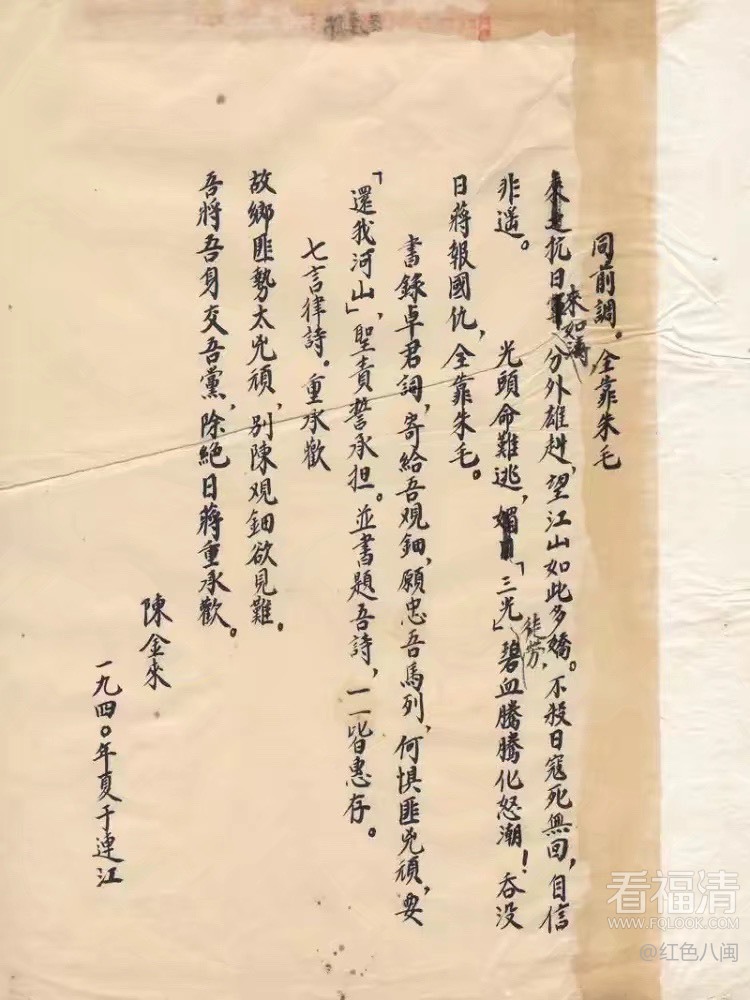 同前調。全靠朱毛
抗日軍來如濤,分外雄赳,望江山如此多嬌。不殺日寇死無回,自信
非遥。
光頭命難逃,媚「三光」徒劳,碧血騰騰化怒潮!吞没
日蔣報國仇,全靠朱毛。
書錄卓君詞,寄給吾观鈿,願忠吾馬列,何惧匪兇頑,要
「還我河山」,聖責誓承担。並書題吾詩,一一皆惠存。
七言律詩。重承歡
故鄉匪勢太兇頑,别陳观鈿欲見難。
吾將吾身交吾黨,除絕日蔣重承歡。
陳金來
一九四〇年夏于連江
看福清
WWW.FQLOOK.COM
@红色八闽